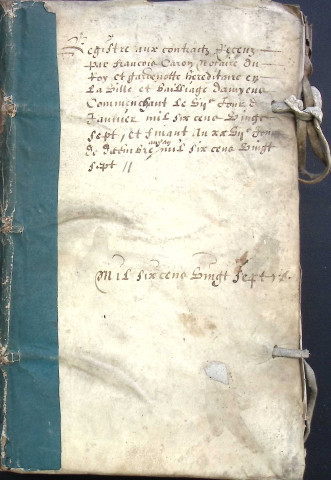 Registre aux contractz Receuz
par Francois Caron Notaire du
Roy et gardenotte hereditaire en
la Ville et Bailliage damyens
Commenchant le Jour de
Janvier mil six cens vingt
sept, et finant au xxviie Jour
de decembre audit an mil six cens vingt
sept //
Mil six cens vingt sept